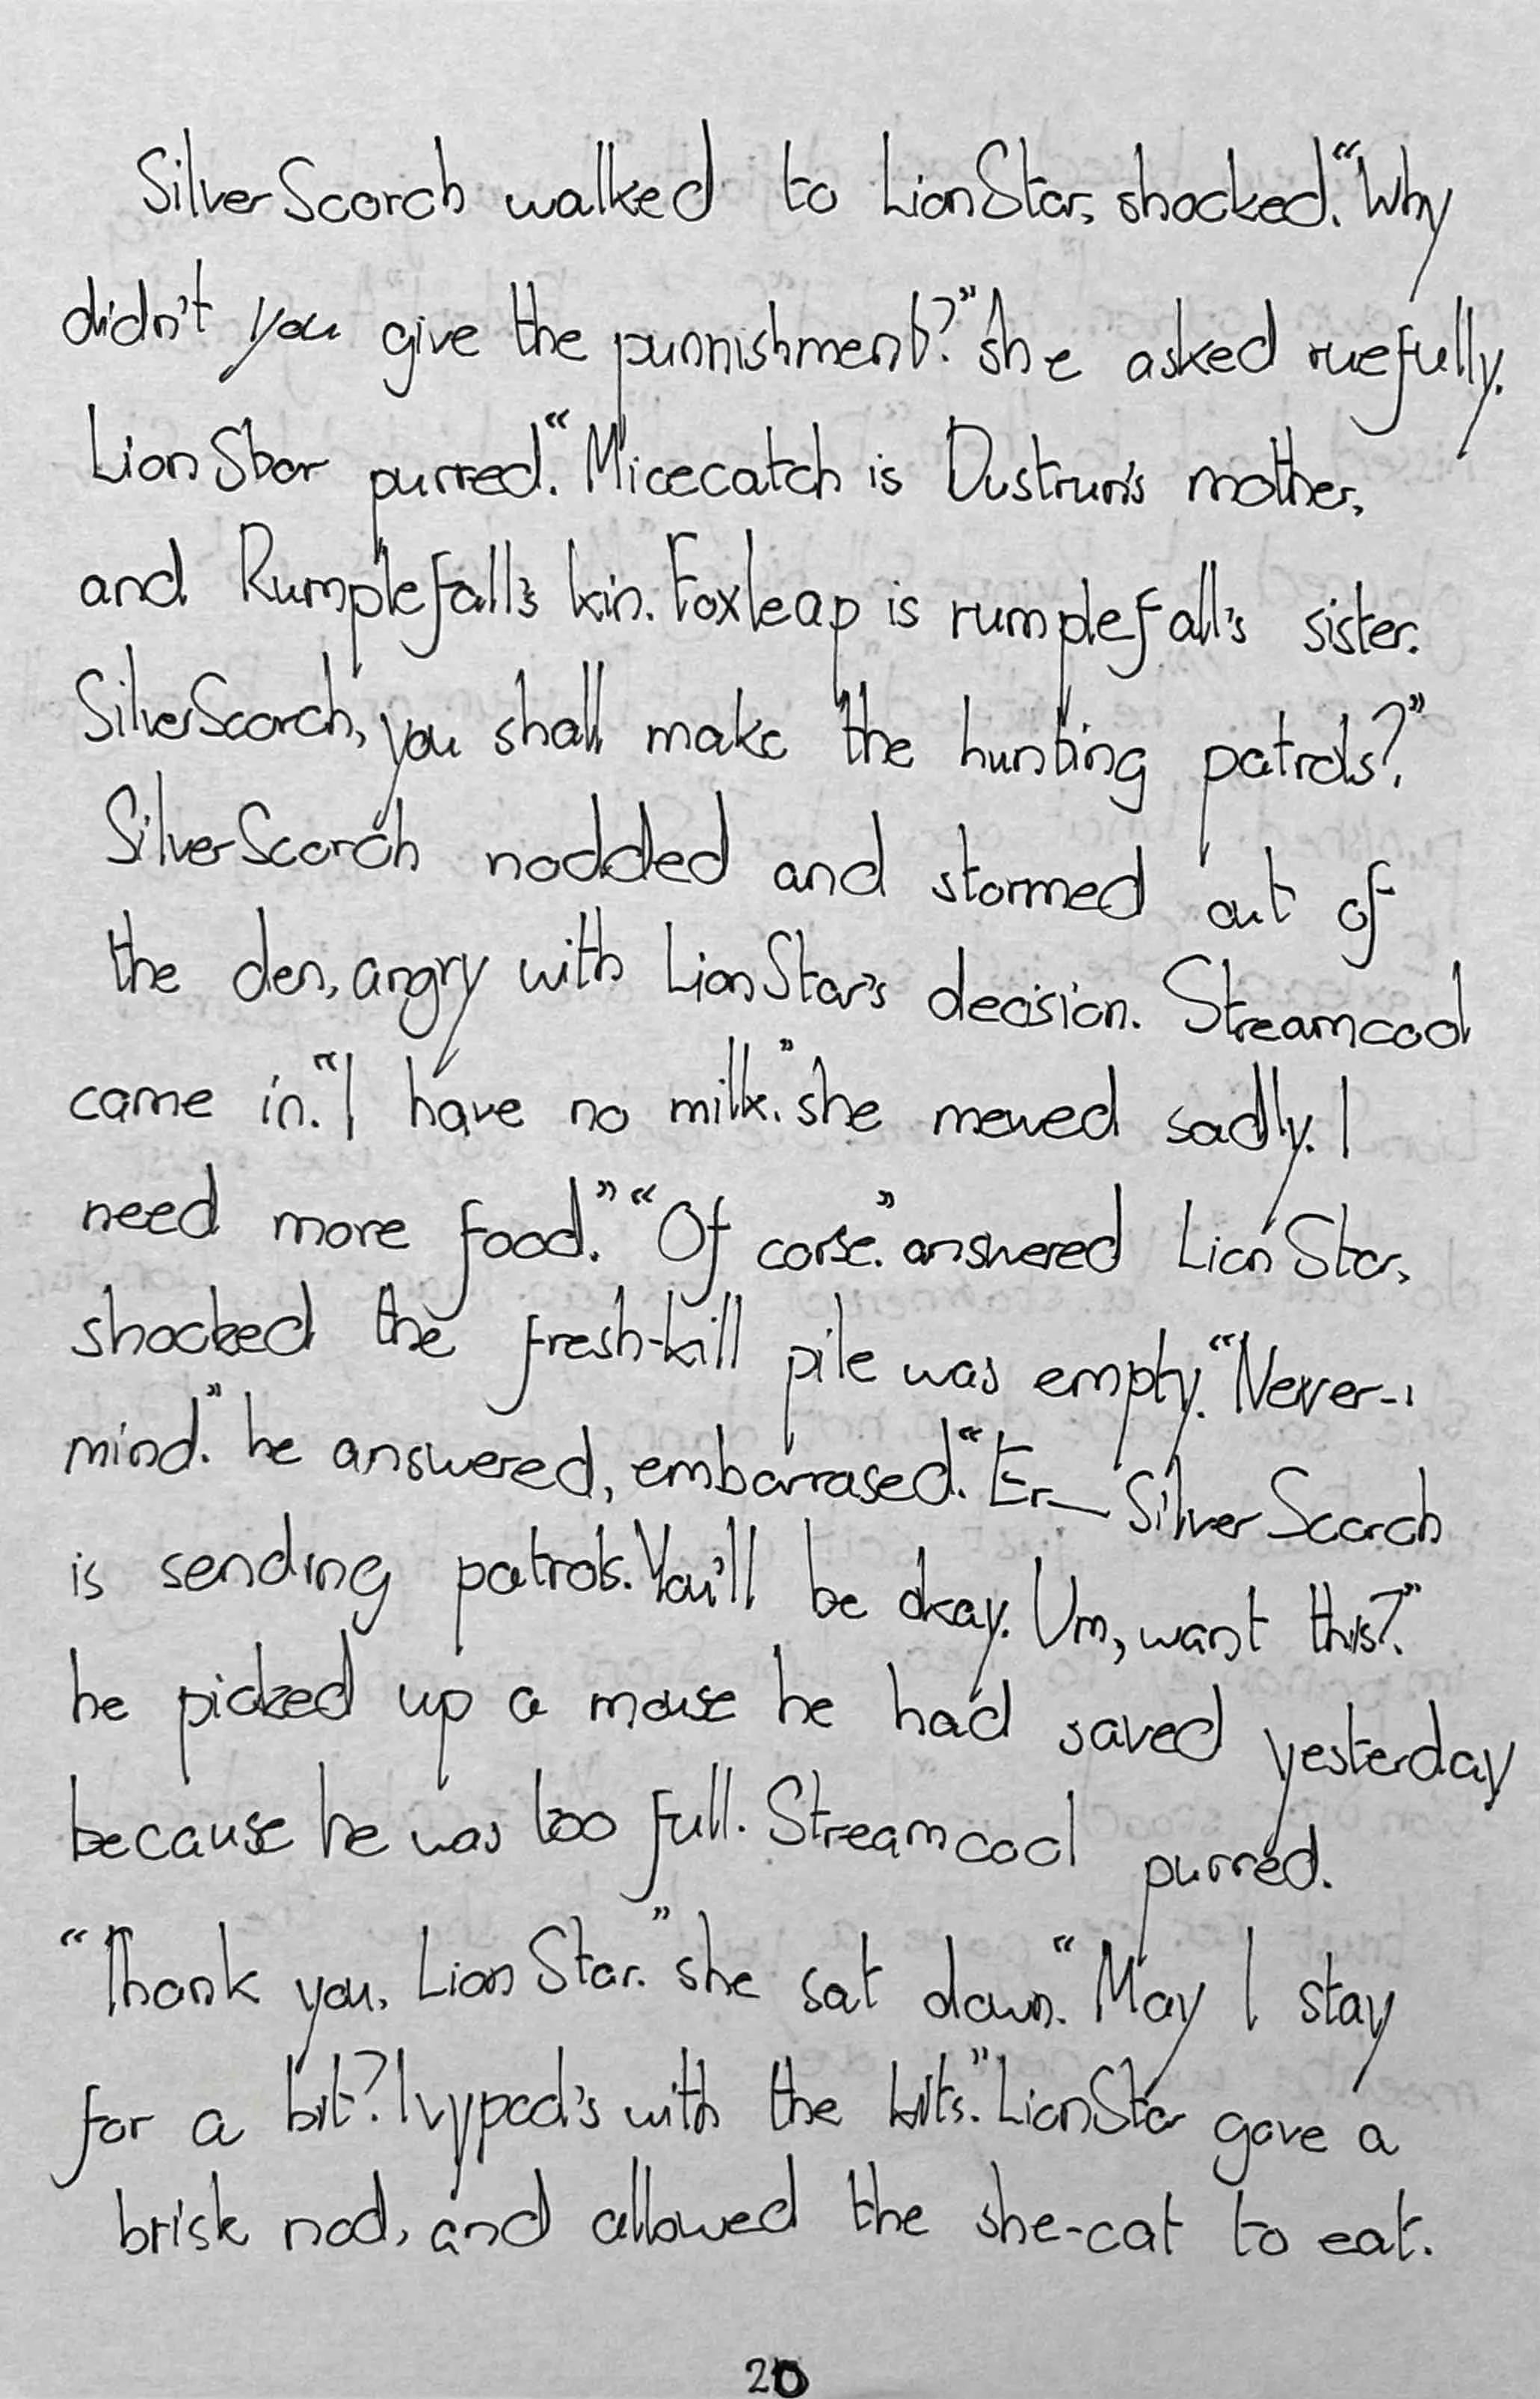 SilverScorch walked to LionStar, shocked. "Why
didn't you give the punnishment?" she asked ruefully.
LionStar purred. "Micecatch is Dustrun's mother,
and Rumplefall's kin. Foxleap is rumplefall's sister.
SilverScorch, you shall make the hunting patrols?"
SilverScorch nodded and stormed out of
the den, angry with LionStar's decision. Streamcool
came in. "I have no milk." she mewed sadly. I
need more food." "Of corse." answered LionStar,
shocked the fresh-kill pile was empty. "Never-
mind." he answered, embarrased. "Er— SilverScorch
is sending patrols. You'll be okay. Um, want this?"
he picked up a mouse he had saved yesterday
because he was too full. Streamcool purred.
"Thank you, LionStar." she sat down. "May I stay
for a bit? Ivypool's with the kits." LionStar gave a
brisk nod, and allowed the she-cat to eat.
20